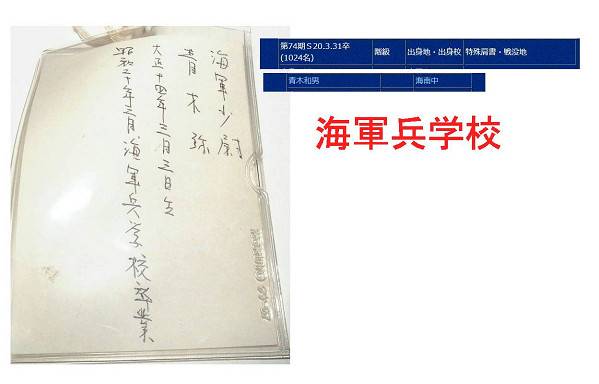 海軍少尉
青木 弥
大正十四年三月三日生
昭和二十年三月海軍兵学校卒業
第74期S20.3.31卒
(1024名)
階級
出身地・出身校
特殊肩書・戦没地
青木和男
海南中
海軍兵学校